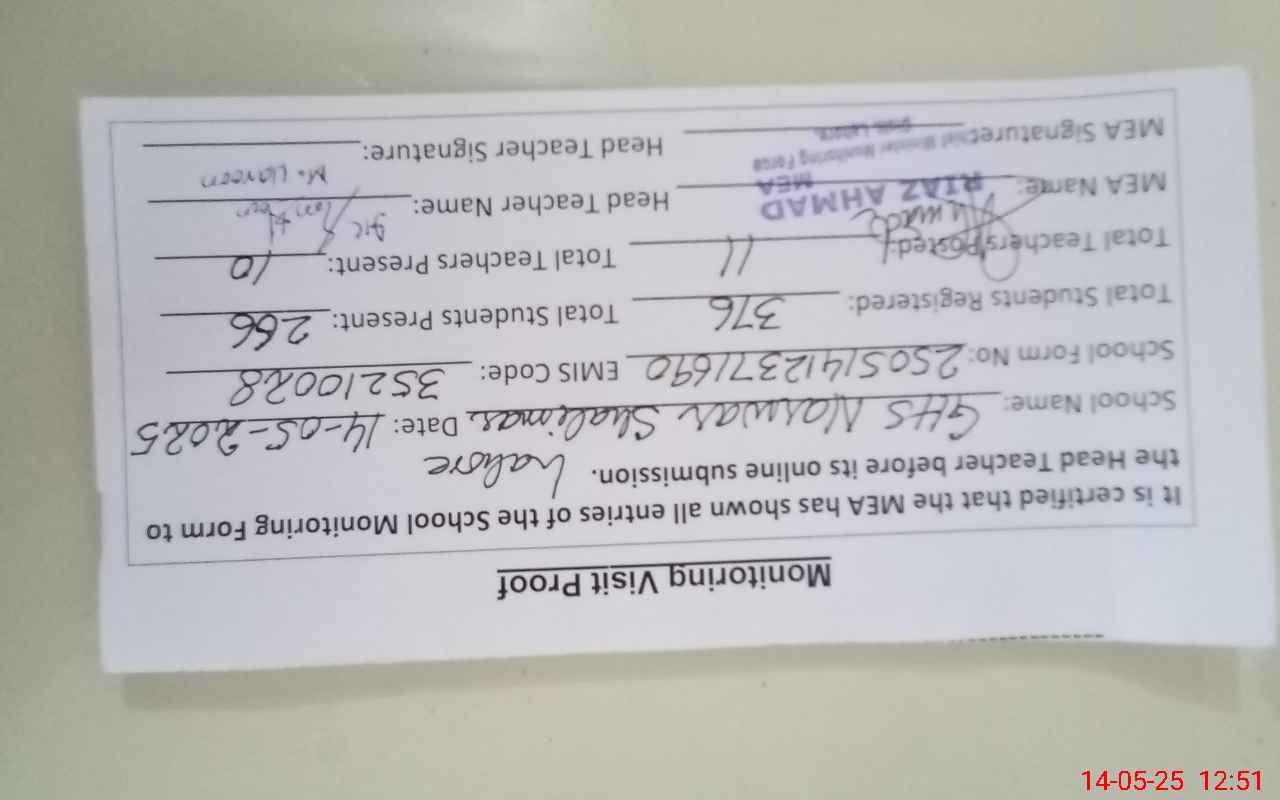 Monitoring Visit Proof
It is certified that the MEA has shown all entries of the School Monitoring Form to
the Head Teacher before its online submission. Lahore
School Name: GHS Narwar Shalimar Date: 14-05-2025
School Form No: 25051412371690 EMIS Code: 35210028
Total Students Registered: 376 Total Students Present: 266
Total Teachers Posted: 11 Total Teachers Present: 10
MEA Name: RIAZ AHMAD Head Teacher Name:
MEA
Chief Minister Monitoring Force
MEA Signature: Head Teacher Signature:
Distt. Lahore
14-05-25 12:51